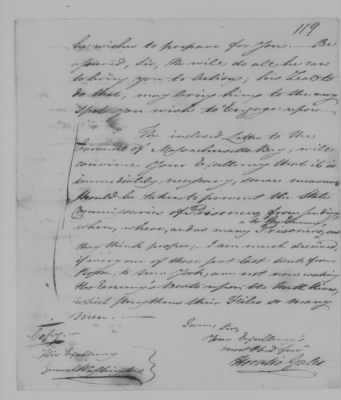 119
he wishes to prepare for you. Be
assured, Sir, He will do all he can
to bring you to Action; his Zeal to
do that, may bring him to the very
Spot you wish to Engage upon.
The inclosed Letter to the
Council of Massachusetts Bay, will
convince Your Excellency that it is
immediately necessary, some measures
should be taken to prevent the State
Commissaries of Prisoners from sending
to the Enemy,
when, where, and as many Prisoners, as
they think proper; I am much deceived,
if many of those sent last week from
Boston, to New York, are not now making
the Enemy's Boats upon the North River,
which strengthens their Files so many
Men.
I am, Sir,
Your Excellency's
most Obed Servt
Horatio Gates
Copy
His Excellency
General Washington